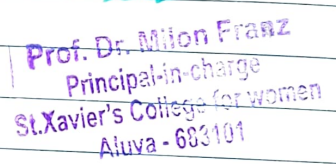 Prof. Dr. Milon Franz
Principal-in-charge
St.Xavier's College for women
Aluva - 683101